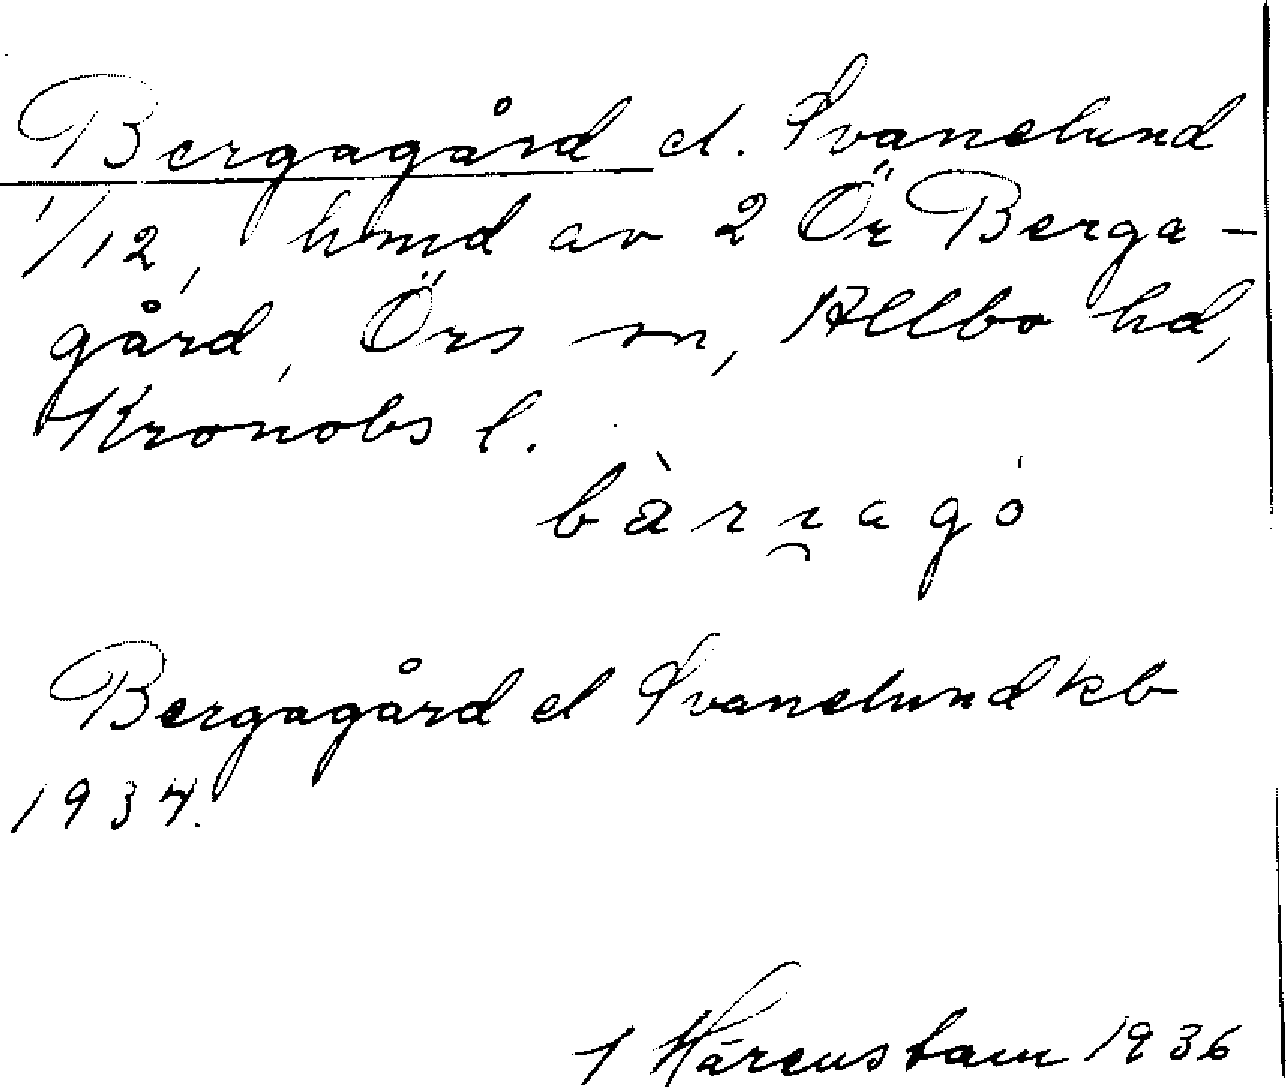 Bergagård el. Svanelund
1/12, hmd av 2 Ör Berga-
gård, Örs sn, Allbo hd,
Kronobs l.
bàrɲagó
Bergagård el Svanelund kb
1934.
1936